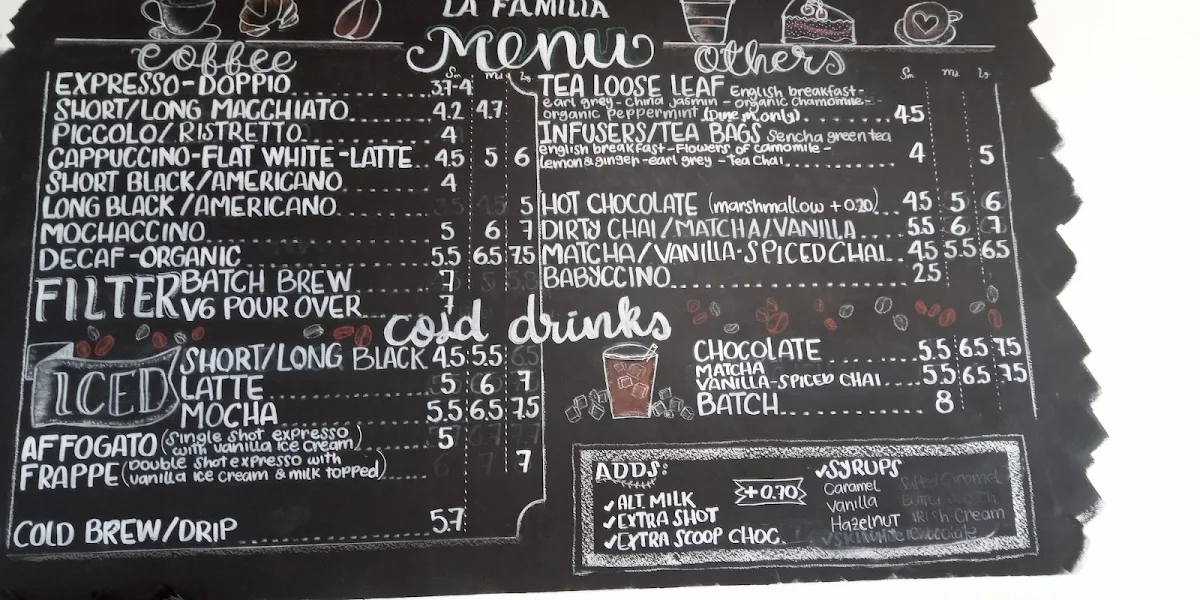 LA FAMILIA
Menu
coffee
Sm Md Lg
EXPRESSO-DOPPIO 3.7-4
SHORT/LONG MACCHIATO 4.2 4.7
PICCOLO/RISTRETTO 4
CAPPUCCINO-FLAT WHITE-LATTE 4.5 5 6
SHORT BLACK/AMERICANO 4
LONG BLACK/AMERICANO 5
MOCHACCINO 5 6 7
DECAF-ORGANIC 5.5 6.5 7.5
FILTER
BATCH BREW 7
V6 POUR OVER 7
others
Sm Md Lg
TEA LOOSE LEAF English breakfast-
earl grey-china jasmin-organic chamomile-
organic peppermint (Dine in only) 4.5
INFUSERS/TEA BAGS Sencha green tea
english breakfast-Flowers of camomile-
lemon&ginger-earl grey-Tea Chai 4 5
HOT CHOCOLATE (marshmallow +0.20) 4.5 5 6
DIRTY CHAI/MATCHA/VANILLA 5.5 6 7
MATCHA/VANILLA-SPICED CHAI 4.5 5.5 6.5
BABYCCINO 2.5
cold drinks
ICED
SHORT/LONG BLACK 4.5 5.5
LATTE 5 6 7
MOCHA 5.5 6.5 7.5
AFFOGATO (Single shot expresso
with vanilla ice cream) 5
FRAPPE (Double shot expresso with
vanilla ice cream & milk topped) 7
COLD BREW/DRIP 5.7
CHOCOLATE 5.5 6.5 7.5
MATCHA
VANILLA-SPICED CHAI 5.5 6.5 7.5
BATCH 8
ADDS:
+0.70
✓ALT. MILK
✓EXTRA SHOT
✓EXTRA SCOOP CHOC.
✓SYRUPS
Caramel Salted Caramel
Vanilla
Hazelnut Irish Cream